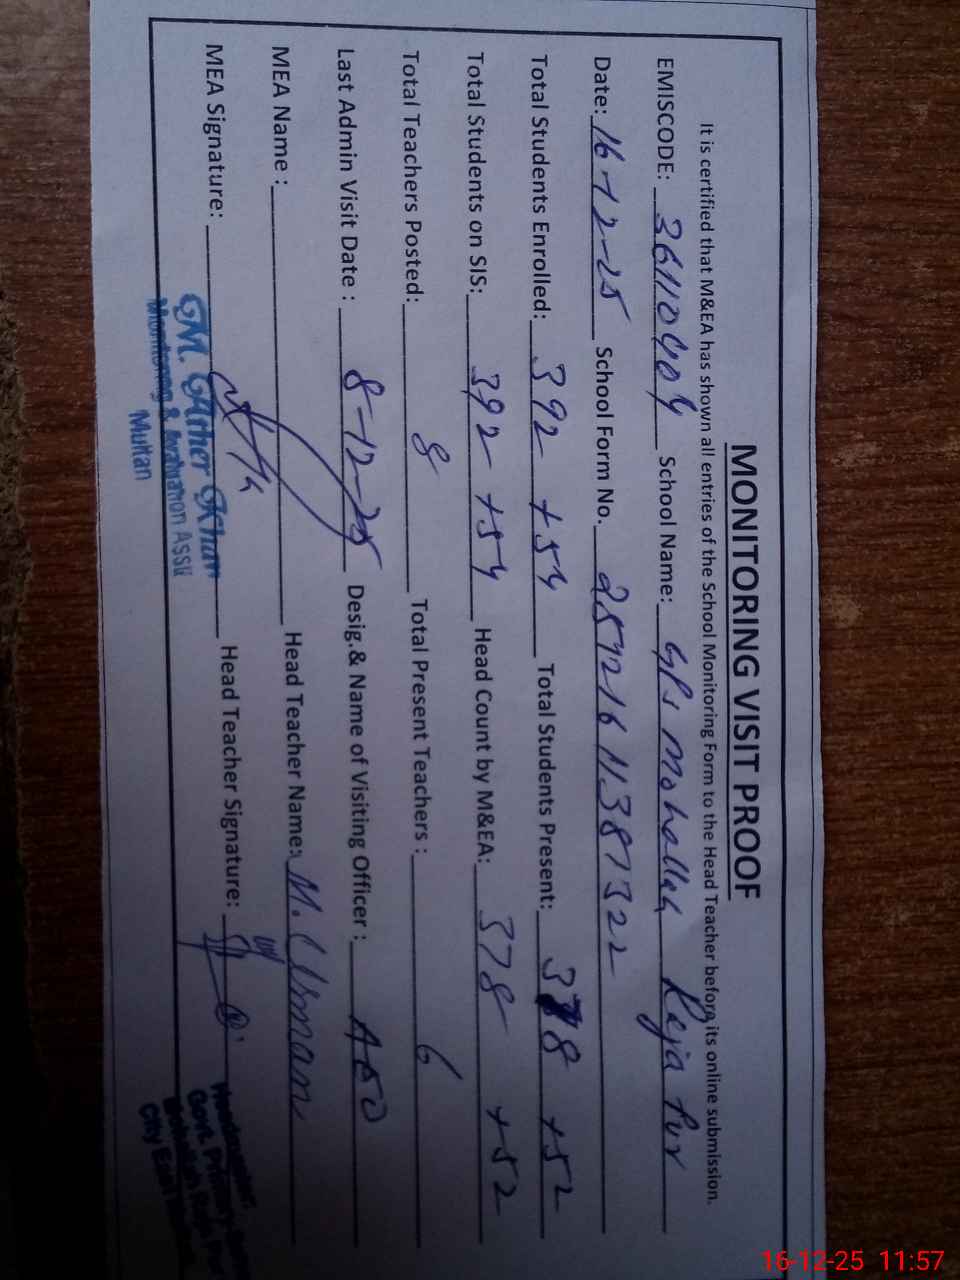 MONITORING VISIT PROOF
It is certified that M&EA has shown all entries of the School Monitoring Form to the Head Teacher before its online submission.
EMISCODE: 36110404 School Name: GPS Mohallah Raja Pur
Date: 16-12-25 School Form No. 25721611387322
Total Students Enrolled: 392 +54 Total Students Present: 378 +52
Total Students on SIS: 392 +54 Head Count by M&EA: 378 +52
Total Teachers Posted: 8 Total Present Teachers : 6
Last Admin Visit Date : 8-12-25 Desig.& Name of Visiting Officer : AEO
MEA Name : Head Teacher Name: M. Usman
MEA Signature: Head Teacher Signature:
M. Ather Khan
Monitoring & Evaluation Assit
Multan
Headmaster
Govt. Primary
City East
16-12-25 11:57